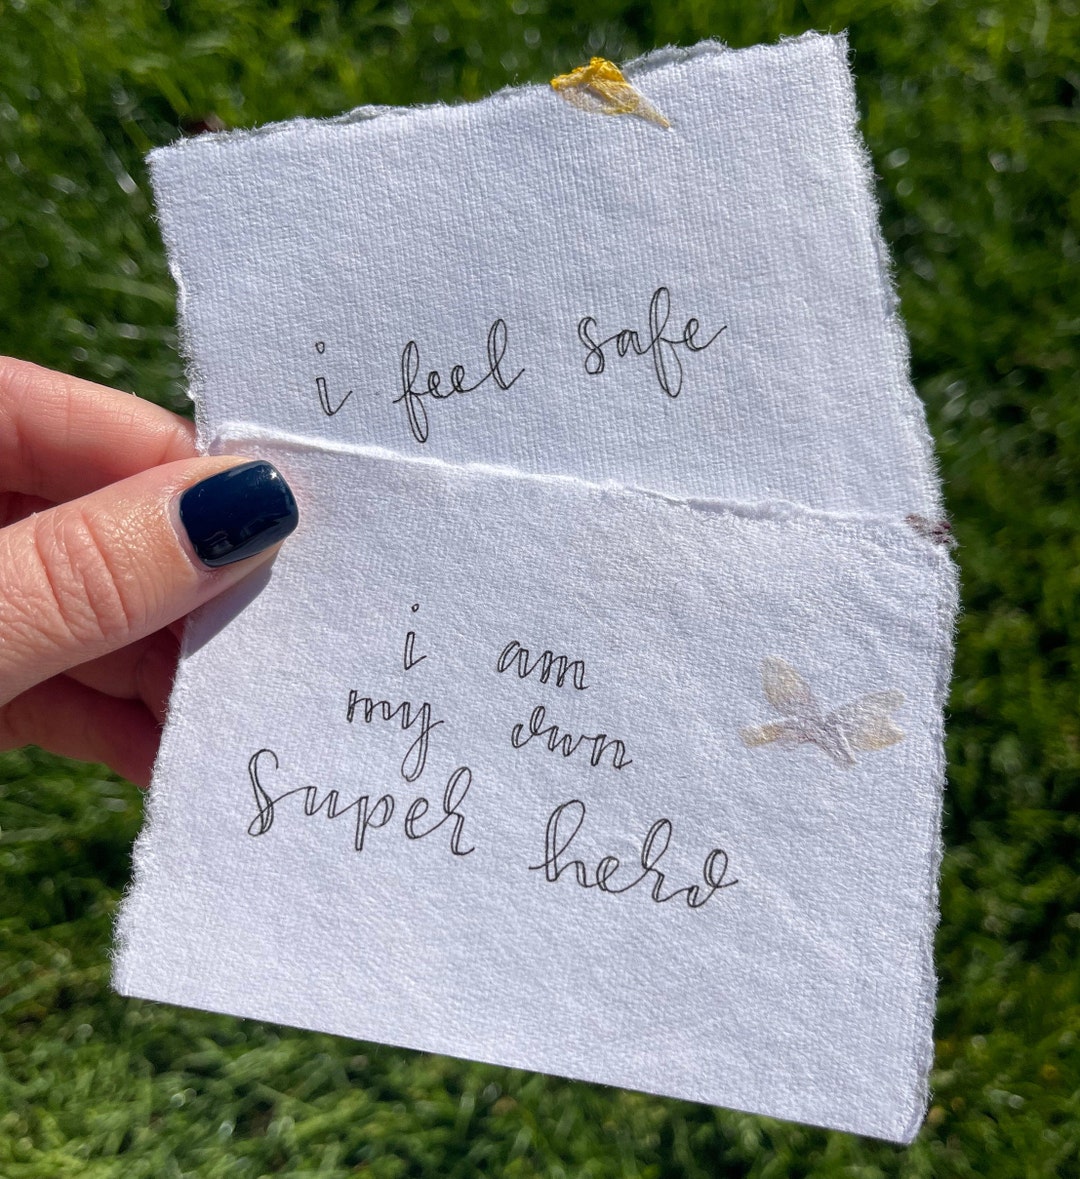 i feel safe
i am
my own
Super hero